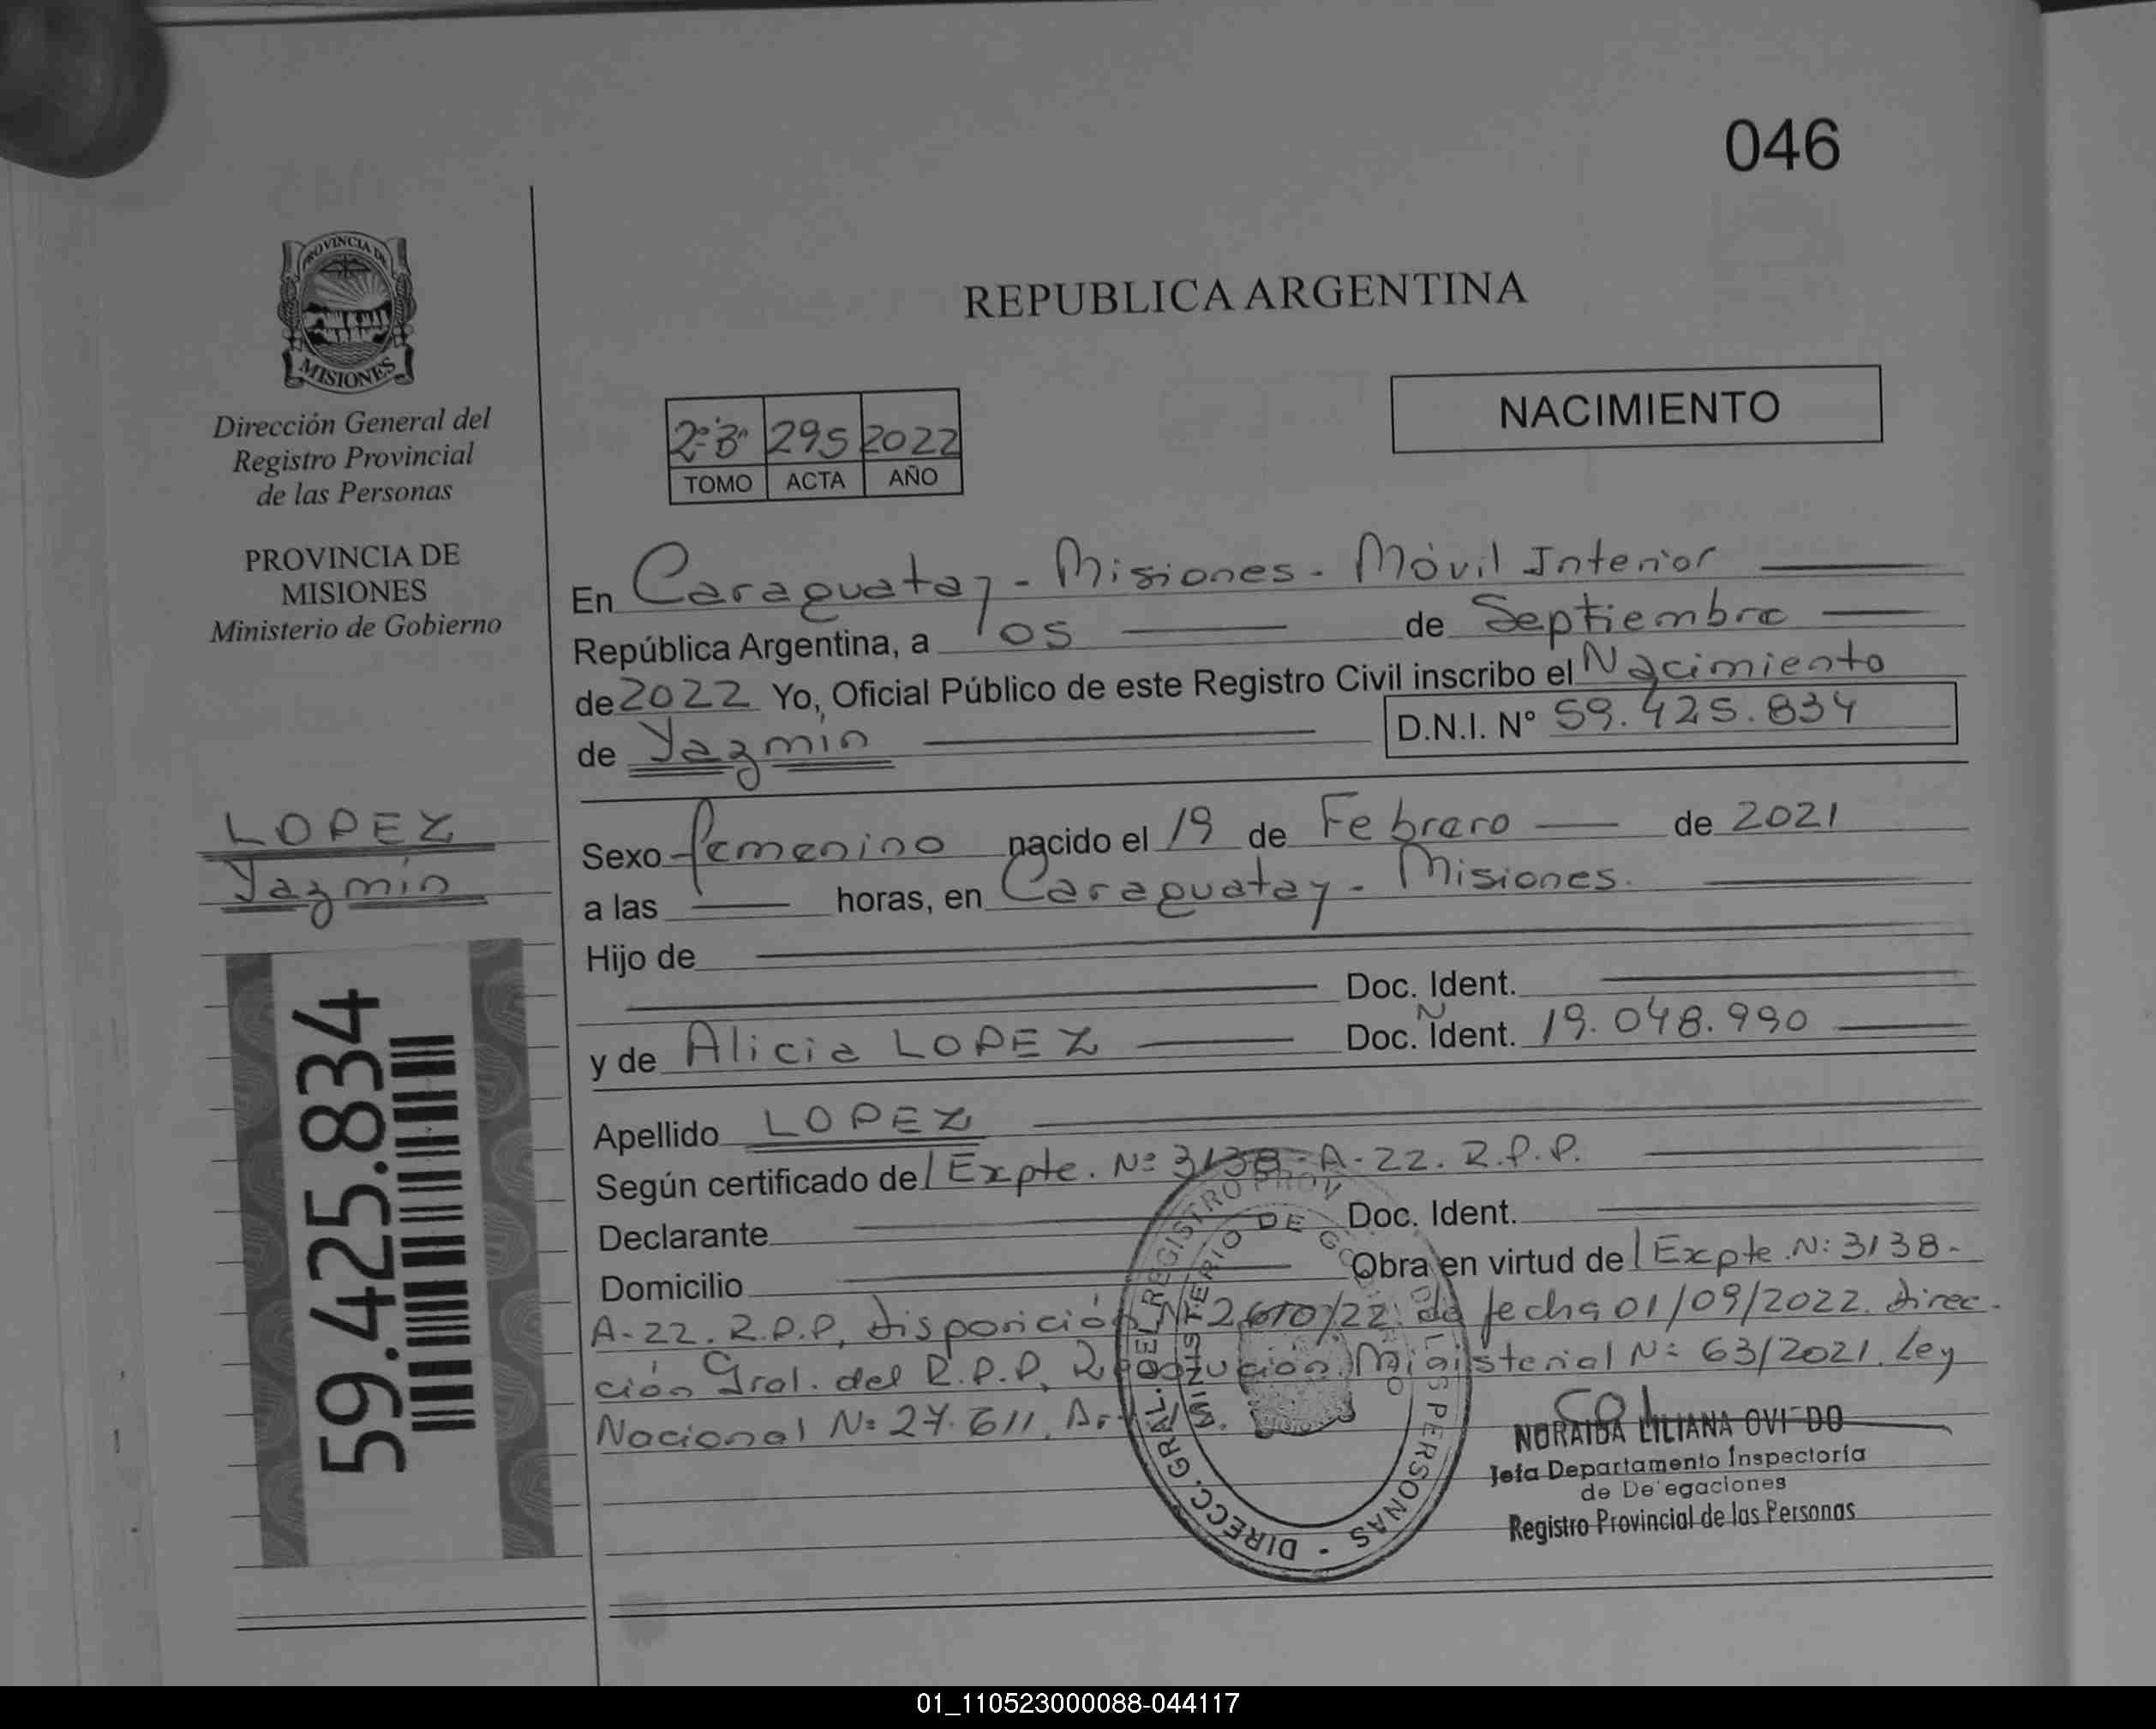 046
PROVINCIA DE
MISIONES
REPUBLICA ARGENTINA
NACIMIENTO
Dirección General del
Registro Provincial
de las Personas
PROVINCIA DE
MISIONES
Ministerio de Gobierno
2º"B" 295 2022
TOMO ACTA AÑO
En Caraguatay - Misiones - Móvil Interior
República Argentina, a 05 de Septiembre
de 2022 Yo, Oficial Público de este Registro Civil inscribo el Nacimiento
de Yazmin D.N.I. Nº 59.425.834
LOPEZ
Yazmin
59.425.834
Sexo femenino nacido el 19 de Febrero de 2021
a las horas, en Caraguatay - Misiones.
Hijo de
Doc. Ident.
y de Alicia LOPEZ Doc. Ident. Nº 19.048.990
Apellido LOPEZ
Según certificado del Expte. Nº 3138-A-22. R.P.P.
Declarante Doc. Ident.
Domicilio Obra en virtud del Expte. Nº 3138-
A-22. R.P.P, disposición Nº 2610/22 de fecha 01/09/2022. Direc-
ción Gral. del R.P.P, Resolución Ministerial Nº 63/2021. Ley
Nacional Nº 27.611.
DIRECC. GRAL. DEL REGISTRO PROV LAS PERSONAS
MINISTERIO DE
NORAIDA LILIANA OVIEDO
Jefa Departamento Inspectoría
de Delegaciones
Registro Provincial de las Personas
01_110523000088-044117